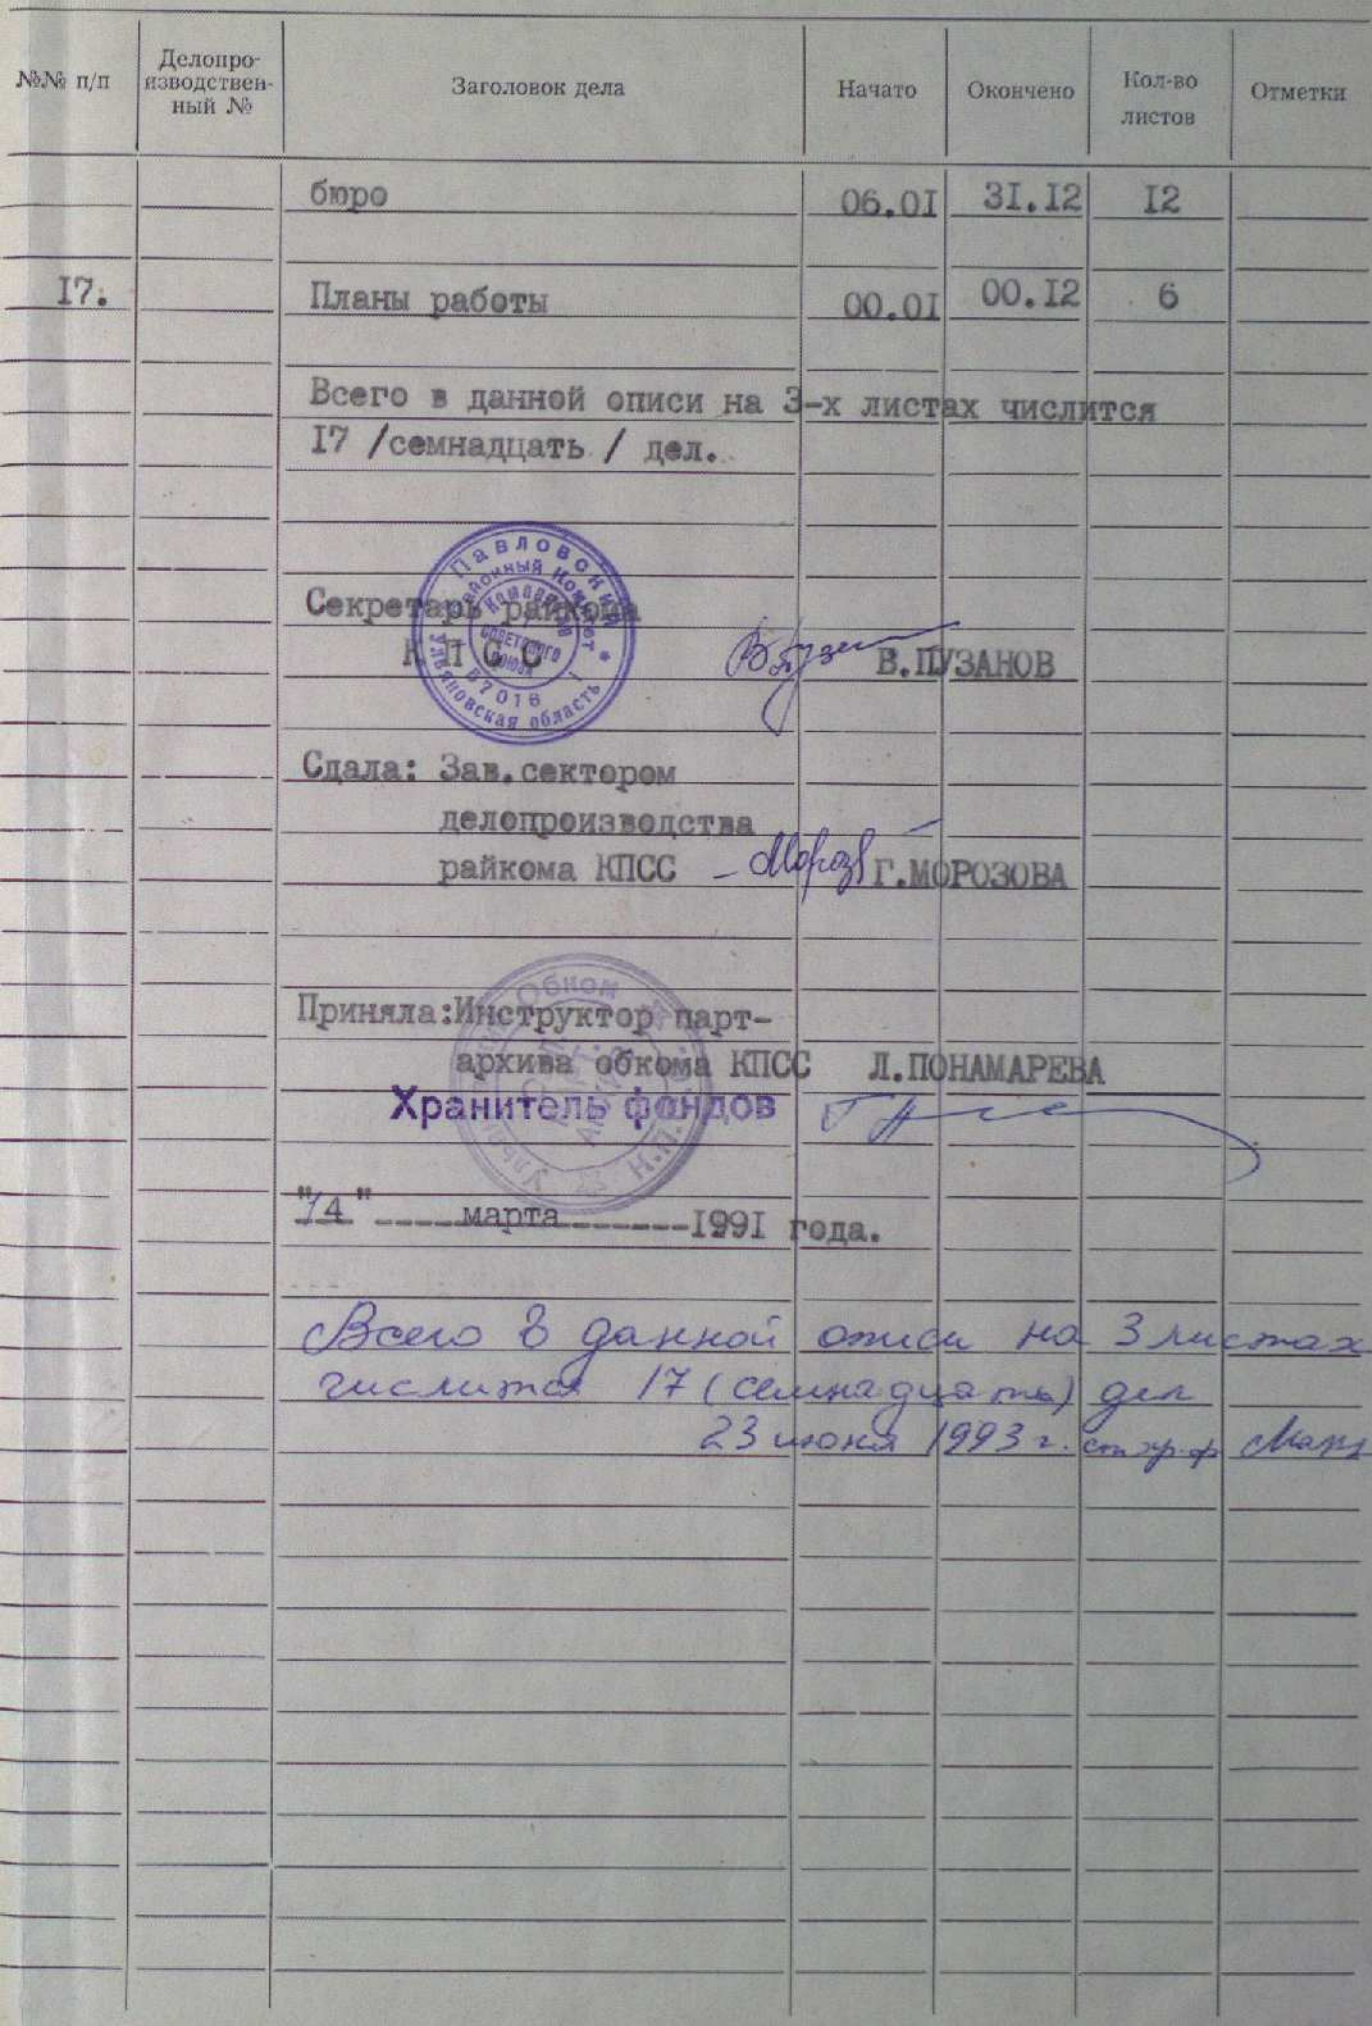 №№ п/п Делопро- изводствен- ный № Заголовок дела Начато Окончено Кол-во листов Отметки
бюро 06.01 31.12 12
17. Планы работы 00.01 00.12 6
Всего в данной описи на 3-х листах числится
17 /семнадцать / дел.
Павловский
районный комитет
Коммунист
Советского
Союза
67016
Ульяновская область
Секретарь райкома
К П С С В.ПУЗАНОВ
Сдала: Зав.сектором
делопроизводства
райкома КПСС – Мороз Г.МОРОЗОВА
Обком
Приняла:Инструктор парт-
архива обкома КПСС Л.ПОНАМАРЕВА
Хранитель фондов
"14" ----марта-------1991 года.
Всего в данной описи на 3 листах
числится 17 (семнадцать) дел
23 июня 1993 г. ст хр.ф